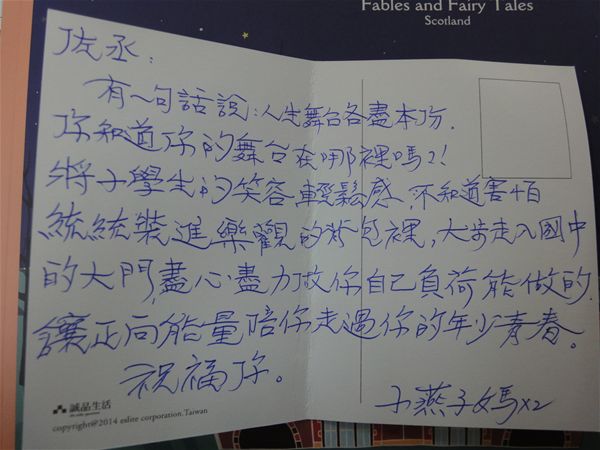 Fables and Fairy Tales
Scotland
佐丞:
有一句話說:人生舞台各盡本份.
你知道你的舞台在哪裡嗎?!
將小學生的笑容,輕鬆感,不知道害怕
統統裝進樂觀的背包裡,大步走入國中
的大門,盡心盡力做你自己負荷能做的.
讓正向能量陪你走過你的年少青春。
祝福你。
小燕子媽x2
誠品生活
copyright@2014 eslite corporation.Taiwan